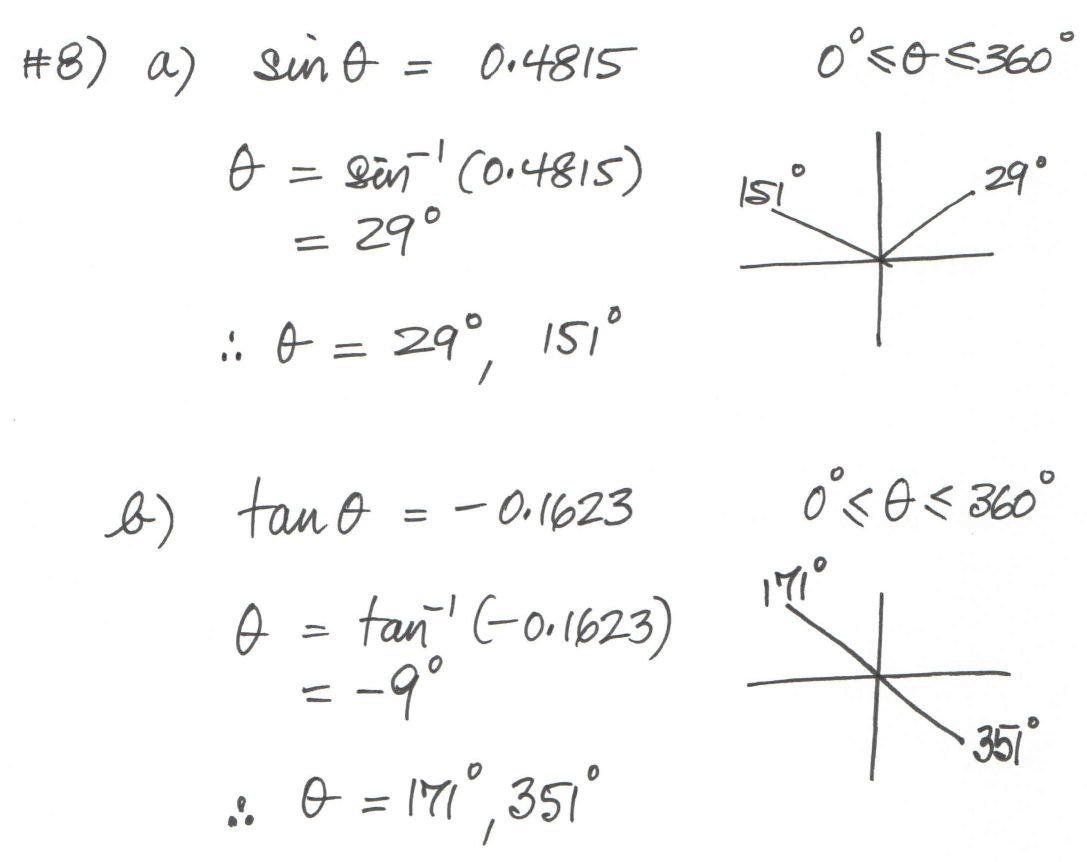 #8) a) sin θ = 0.4815 0° ≤ θ ≤ 360°
θ = sin⁻¹ (0.4815)
= 29°
151° 29°
∴ θ = 29°, 151°
b) tan θ = -0.1623 0° ≤ θ ≤ 360°
171°
θ = tan⁻¹ (-0.1623)
= -9°
351°
∴ θ = 171°, 351°